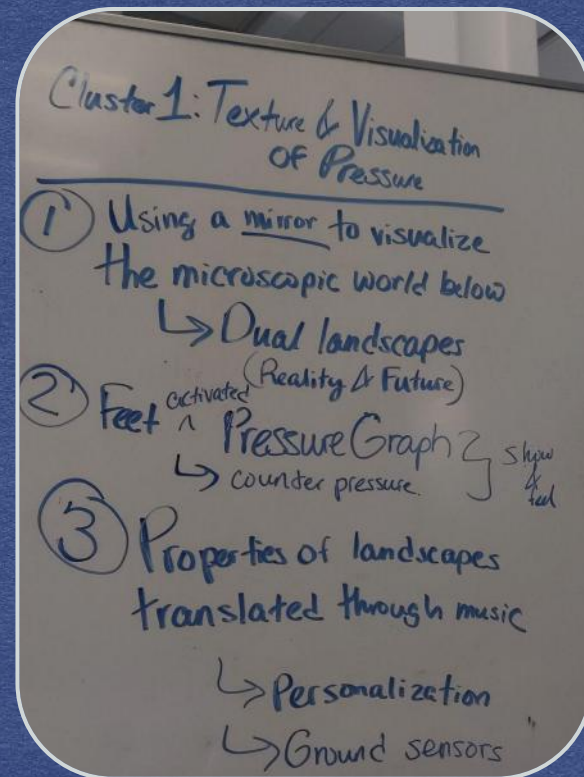 Cluster 1: Texture & Visualization
OF Pressure
① Using a mirror to visualize
the microscopic world below
↳ Dual landscapes
(Reality & Future)
② Feet activated ^ Pressure Graph
↳ counter pressure.
show
&
feel
③ Properties of landscapes
translated through music
↳ Personalization
↳ Ground sensors